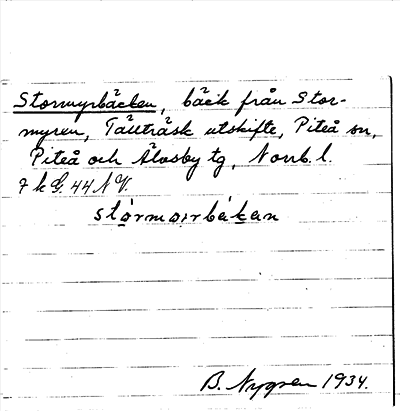 Stormyrbäcken, bäck från Stor-
myren, Tällträsk utskifte, Piteå sn,
Piteå och Älvsby tg, Norrb. l.
7 k G. 44 N V.
stórmơırbákan
B. Nygren 1934.